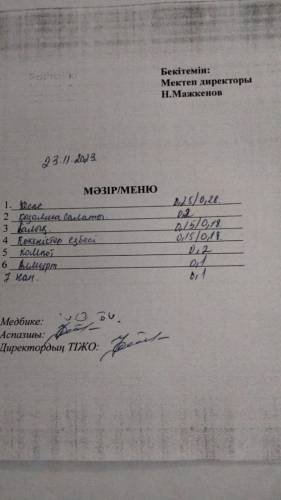 Бекітемін:
Мектеп директоры
Н.Мажкенов
23.11.2023
МӘЗІР/МЕНЮ
1. Кеспе 0,25/0,28
2 салаты 0,2
3 Балық 0,15/0,18
4 Көкөністер езбесі 0,15/0,18
5 Компот 0,2
6 Алмұрт 0,1
7 нан. 0,1
Медбике:
Аспазшы:
Директордың ТІЖО: